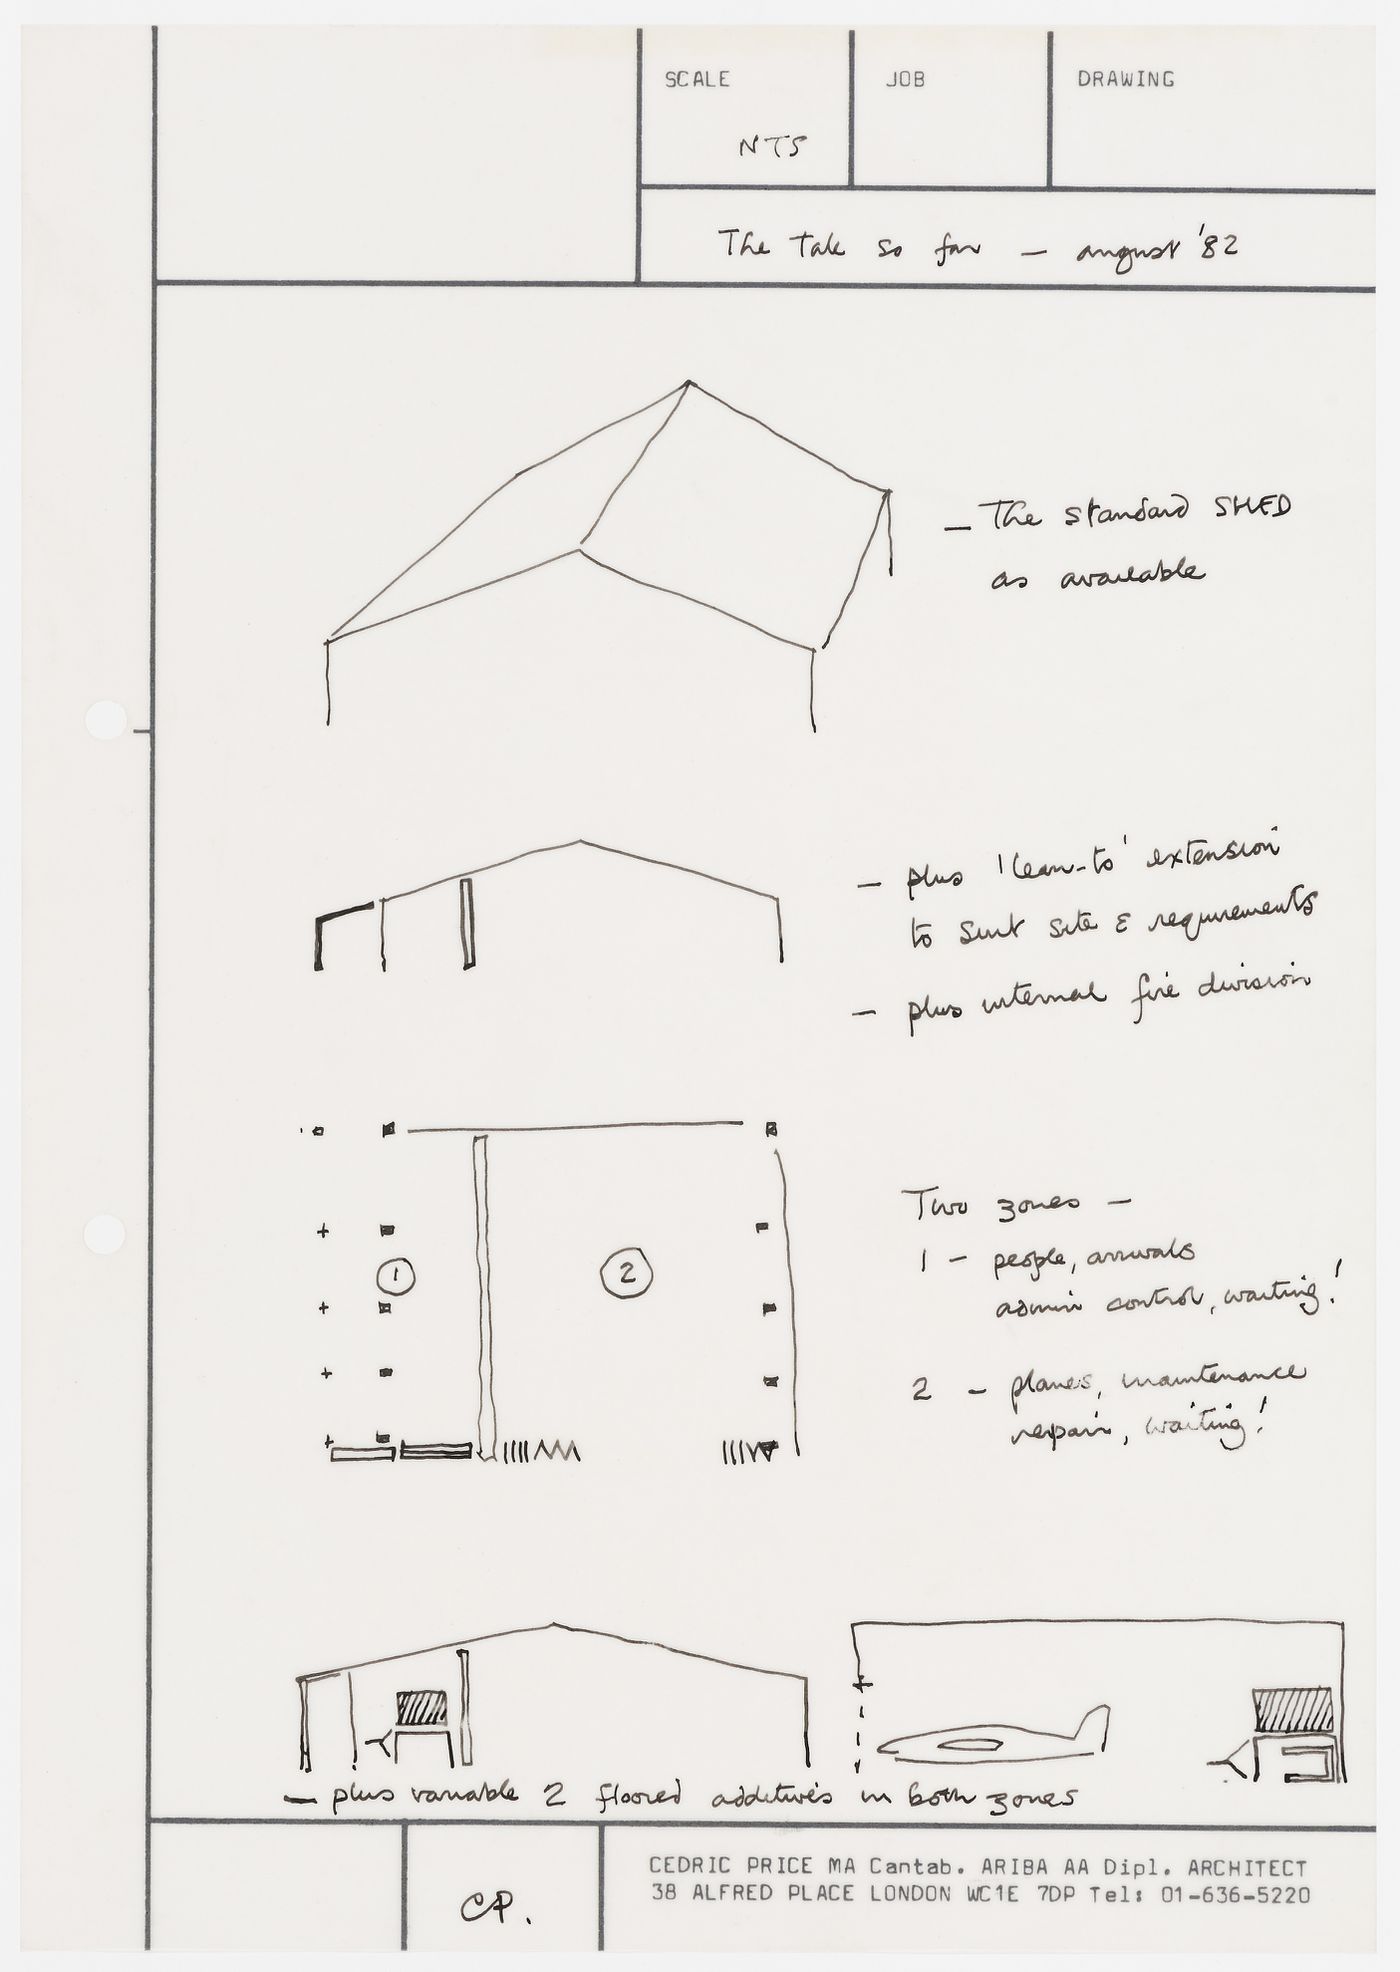 SCALE
JOB
DRAWING
NTS
The Tale so far — august '82
— The standard SHED
as available
— plus 'lean-to' extension
to suit site & requirements
— plus internal fire division
Two zones —
1 — people, arrivals
admin control, waiting!
1
2
2 — planes, maintenance
repair, waiting!
— plus variable 2 floored additives in both zones
CP.
CEDRIC PRICE MA Cantab. ARIBA AA Dipl. ARCHITECT
38 ALFRED PLACE LONDON WC1E 7DP Tel: 01-636-5220